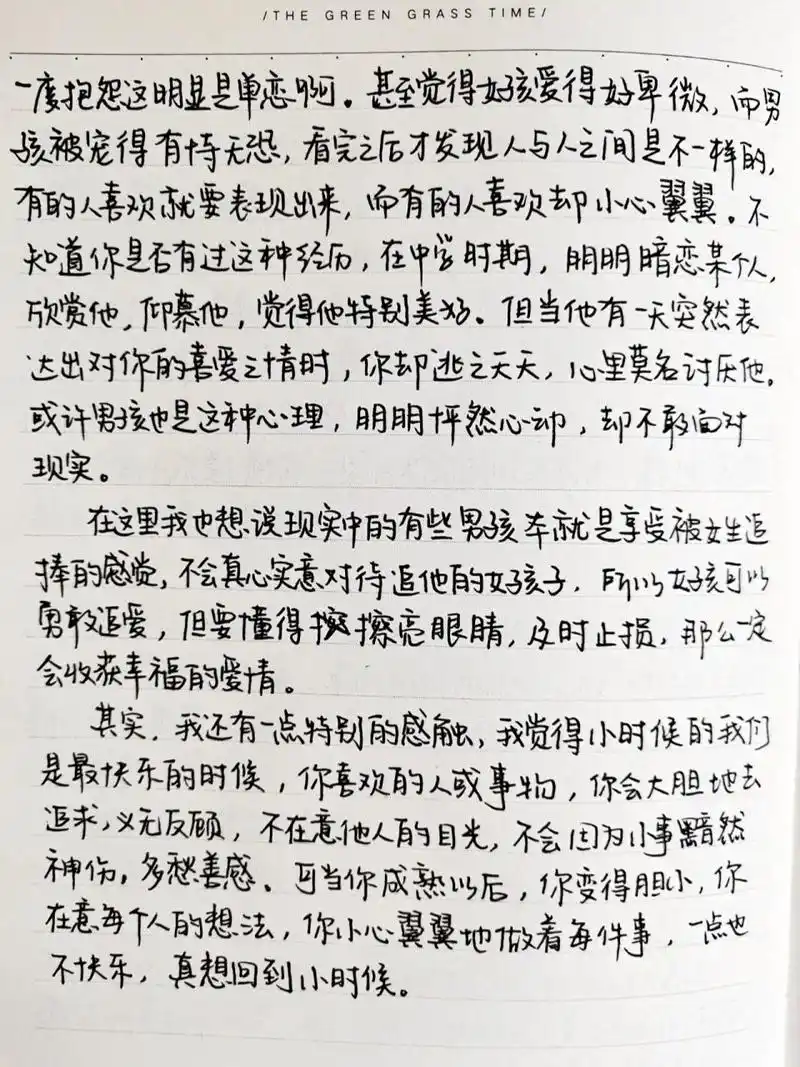 /THE GREEN GRASS TIME/
一度抱怨这明显是单恋啊。甚至觉得女孩爱得好卑微,而男
孩被宠得有恃无恐,看完之后才发现人与人之间是不一样的,
有的人喜欢就要表现出来,而有的人喜欢却小心翼翼。不
知道你是否有过这种经历,在中学时期,明明暗恋某个人,
欣赏他,仰慕他,觉得他特别美好。但当他有一天突然表
达出对你的喜爱之情时,你却逃之夭夭,心里莫名讨厌他。
或许男孩也是这种心理,明明怦然心动,却不敢面对
现实。
在这里我也想说现实中的有些男孩本就是享受被女生追
捧的感觉,不会真心实意对待追他的女孩子,所以女孩可以
勇敢追爱,但要懂得擦亮眼睛,及时止损,那么一定
会收获幸福的爱情。
其实,我还有一点特别的感触,我觉得小时候的我们
是最快乐的时候,你喜欢的人或事物,你会大胆地去
追求,义无反顾,不在意他人的目光,不会因为小事黯然
神伤,多愁善感。可当你成熟以后,你变得胆小,你
在意每个人的想法,你小心翼翼地做着每件事,一点也
不快乐,真想回到小时候。